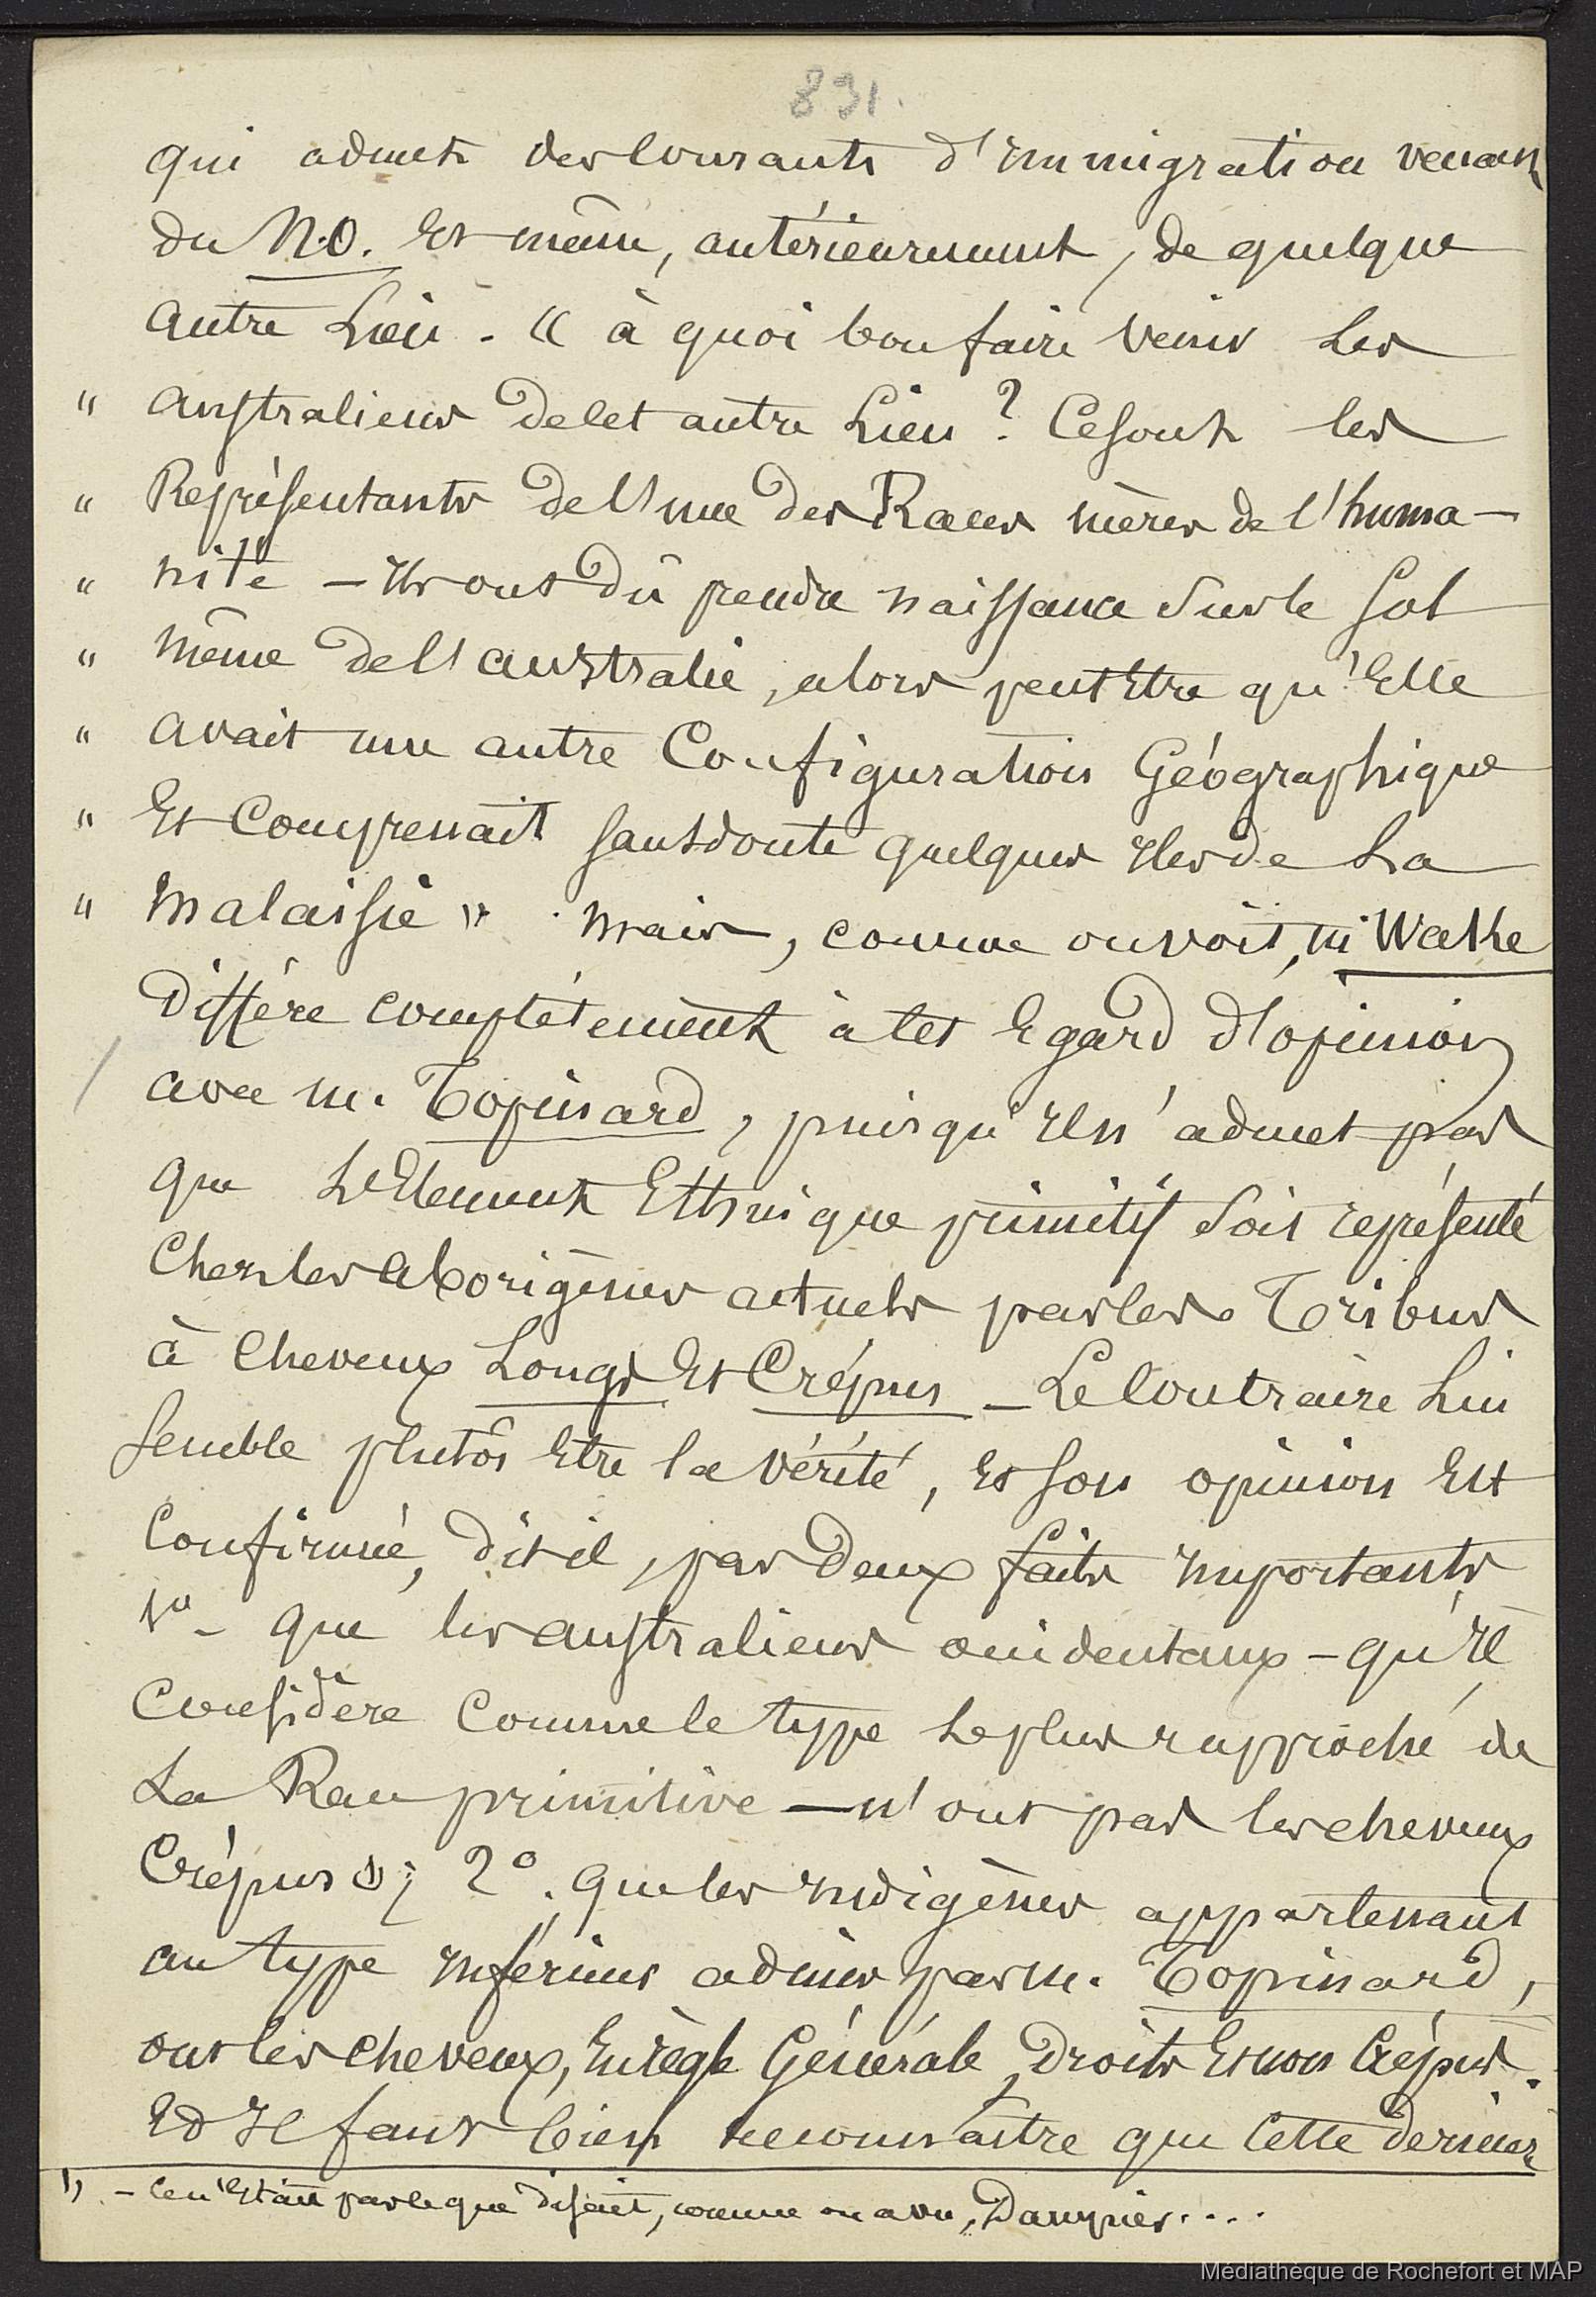 891.
qui admet des Courants d'Immigration venant
du N.O. Et même, antérieurement, de quelque
autre Lieu. « à quoi bon faire venir Les
" australiens de cet autre Lieu ? Ce sont les
" Représentants de l'une des Races mères de l'huma-
" nité — Ils ont dû prendre naissance Sur le Sol
" même de l'australie, alors peut Etre qu'Elle
" avait une autre Configuration Géographique
" Et Comprenait sans doute quelques Iles de La
" Malaisie ». Mais, comme on voit, m
différe complétement à cet Egard d'opinion
avec m. Topinard, puisqu'Il n'admet pas
que L'Element Ethnique primitif Soit représenté
Chez les aborigènes actuels par les Tribus
à Cheveux Longs Et Crépus — Le Contraire Lui
semble plutôt Etre la vérité, et son opinion Est
Confirmée, dit-il, par Deux faits Importants
1º - que les australiens occidentaux - qu'Il
Considère Comme le type Le plus rapproché de
La Race primitive — n'ont pas les cheveux
Crépus 1) ; 2º. que les Indigènes appartenant
au type Inférieur admis par m. Topinard,
ont les cheveux, En règle Générale, Droits Et non Crépus.
Et Il faut bien reconnaître que Cette derniere
1) - Ce n'Etait pas ce que disait, comme on a vu, Dampier....
Médiathèque de Rochefort et MAP